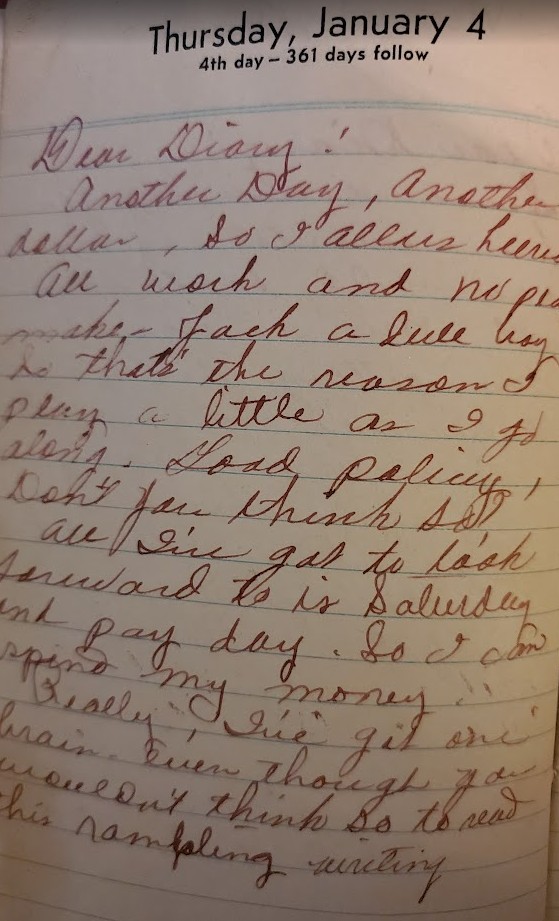 Thursday, January 4
4th day – 361 days follow
Dear Diary!
Another Day, Another
dollar, So I allus
All work and no
make Jack a dull boy
So thats' the reason I
play a little as I go
along. Good policy,
Don't you think so?
All I've got to look
forward to is Saturday
and pay day. So I can
spend my money!!
Really, I've got one
brain. Even though you
wouldn't think so to read
this rambling writing